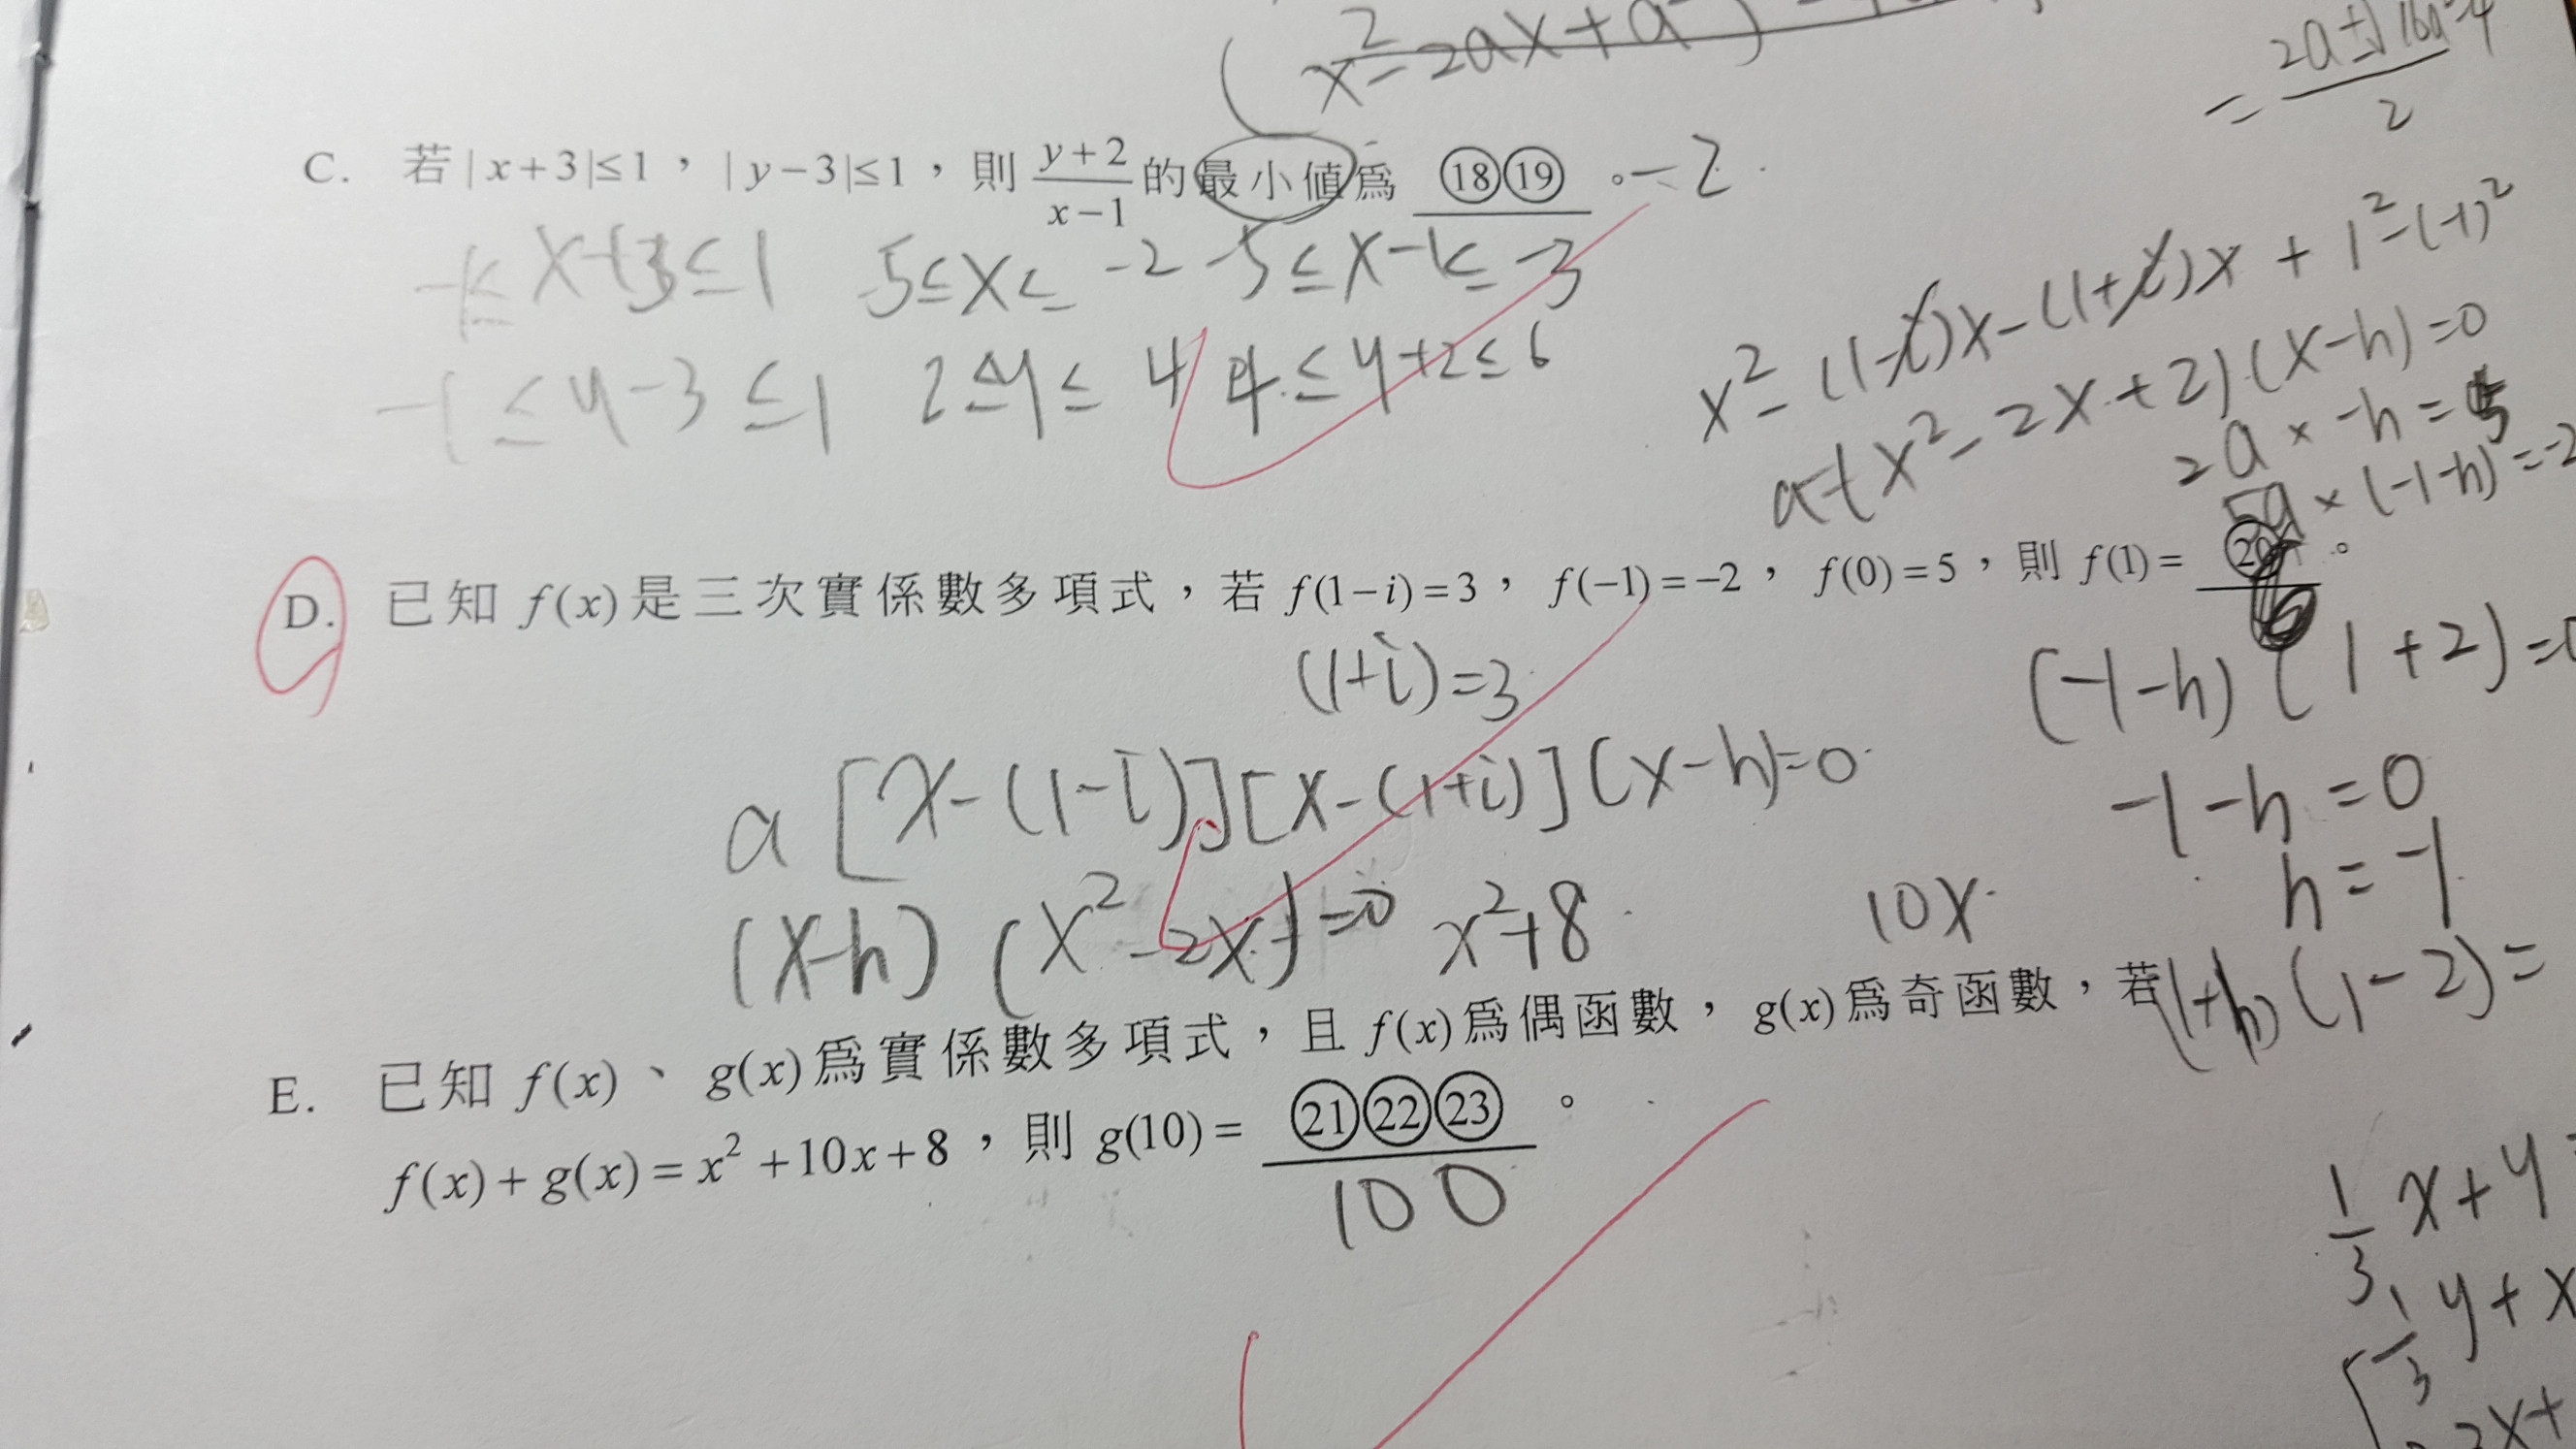 x²-2ax+a
= 2a±√16a²-4 / 2
C. 若 |x+3|≤1，|y-3|≤1，則 (y+2)/(x-1) 的最小值為 ⑱⑲ 。-2
-1≤x+3≤1 -5≤x≤-2 -5≤x-1≤-3
-1≤y-3≤1 2≤y≤4 4≤y+2≤6
x²-(1-i)x-(1+i)x+1²-(-1)²
a(x²-2x+2)(x-h)=0
2a×-h=5
5a×(-1-h)=-2
D. 已知 f(x) 是三次實係數多項式，若 f(1-i)=3，f(-1)=-2，f(0)=5，則 f(1)= ⑳ 。
6
(1+i)=3
(-1-h)(1+2)=0
a[x-(1-i)][x-(1+i)](x-h)=0
-1-h=0
h=-1
(x-h)(x²-2x)=0 x²+8 10x
(1+h)(1-2)=
E. 已知 f(x)、g(x) 為實係數多項式，且 f(x) 為偶函數，g(x) 為奇函數，若
f(x)+g(x)=x²+10x+8，則 g(10)= ㉑㉒㉓ 。
100
1/3 x+y
1/3 y+x
2x+